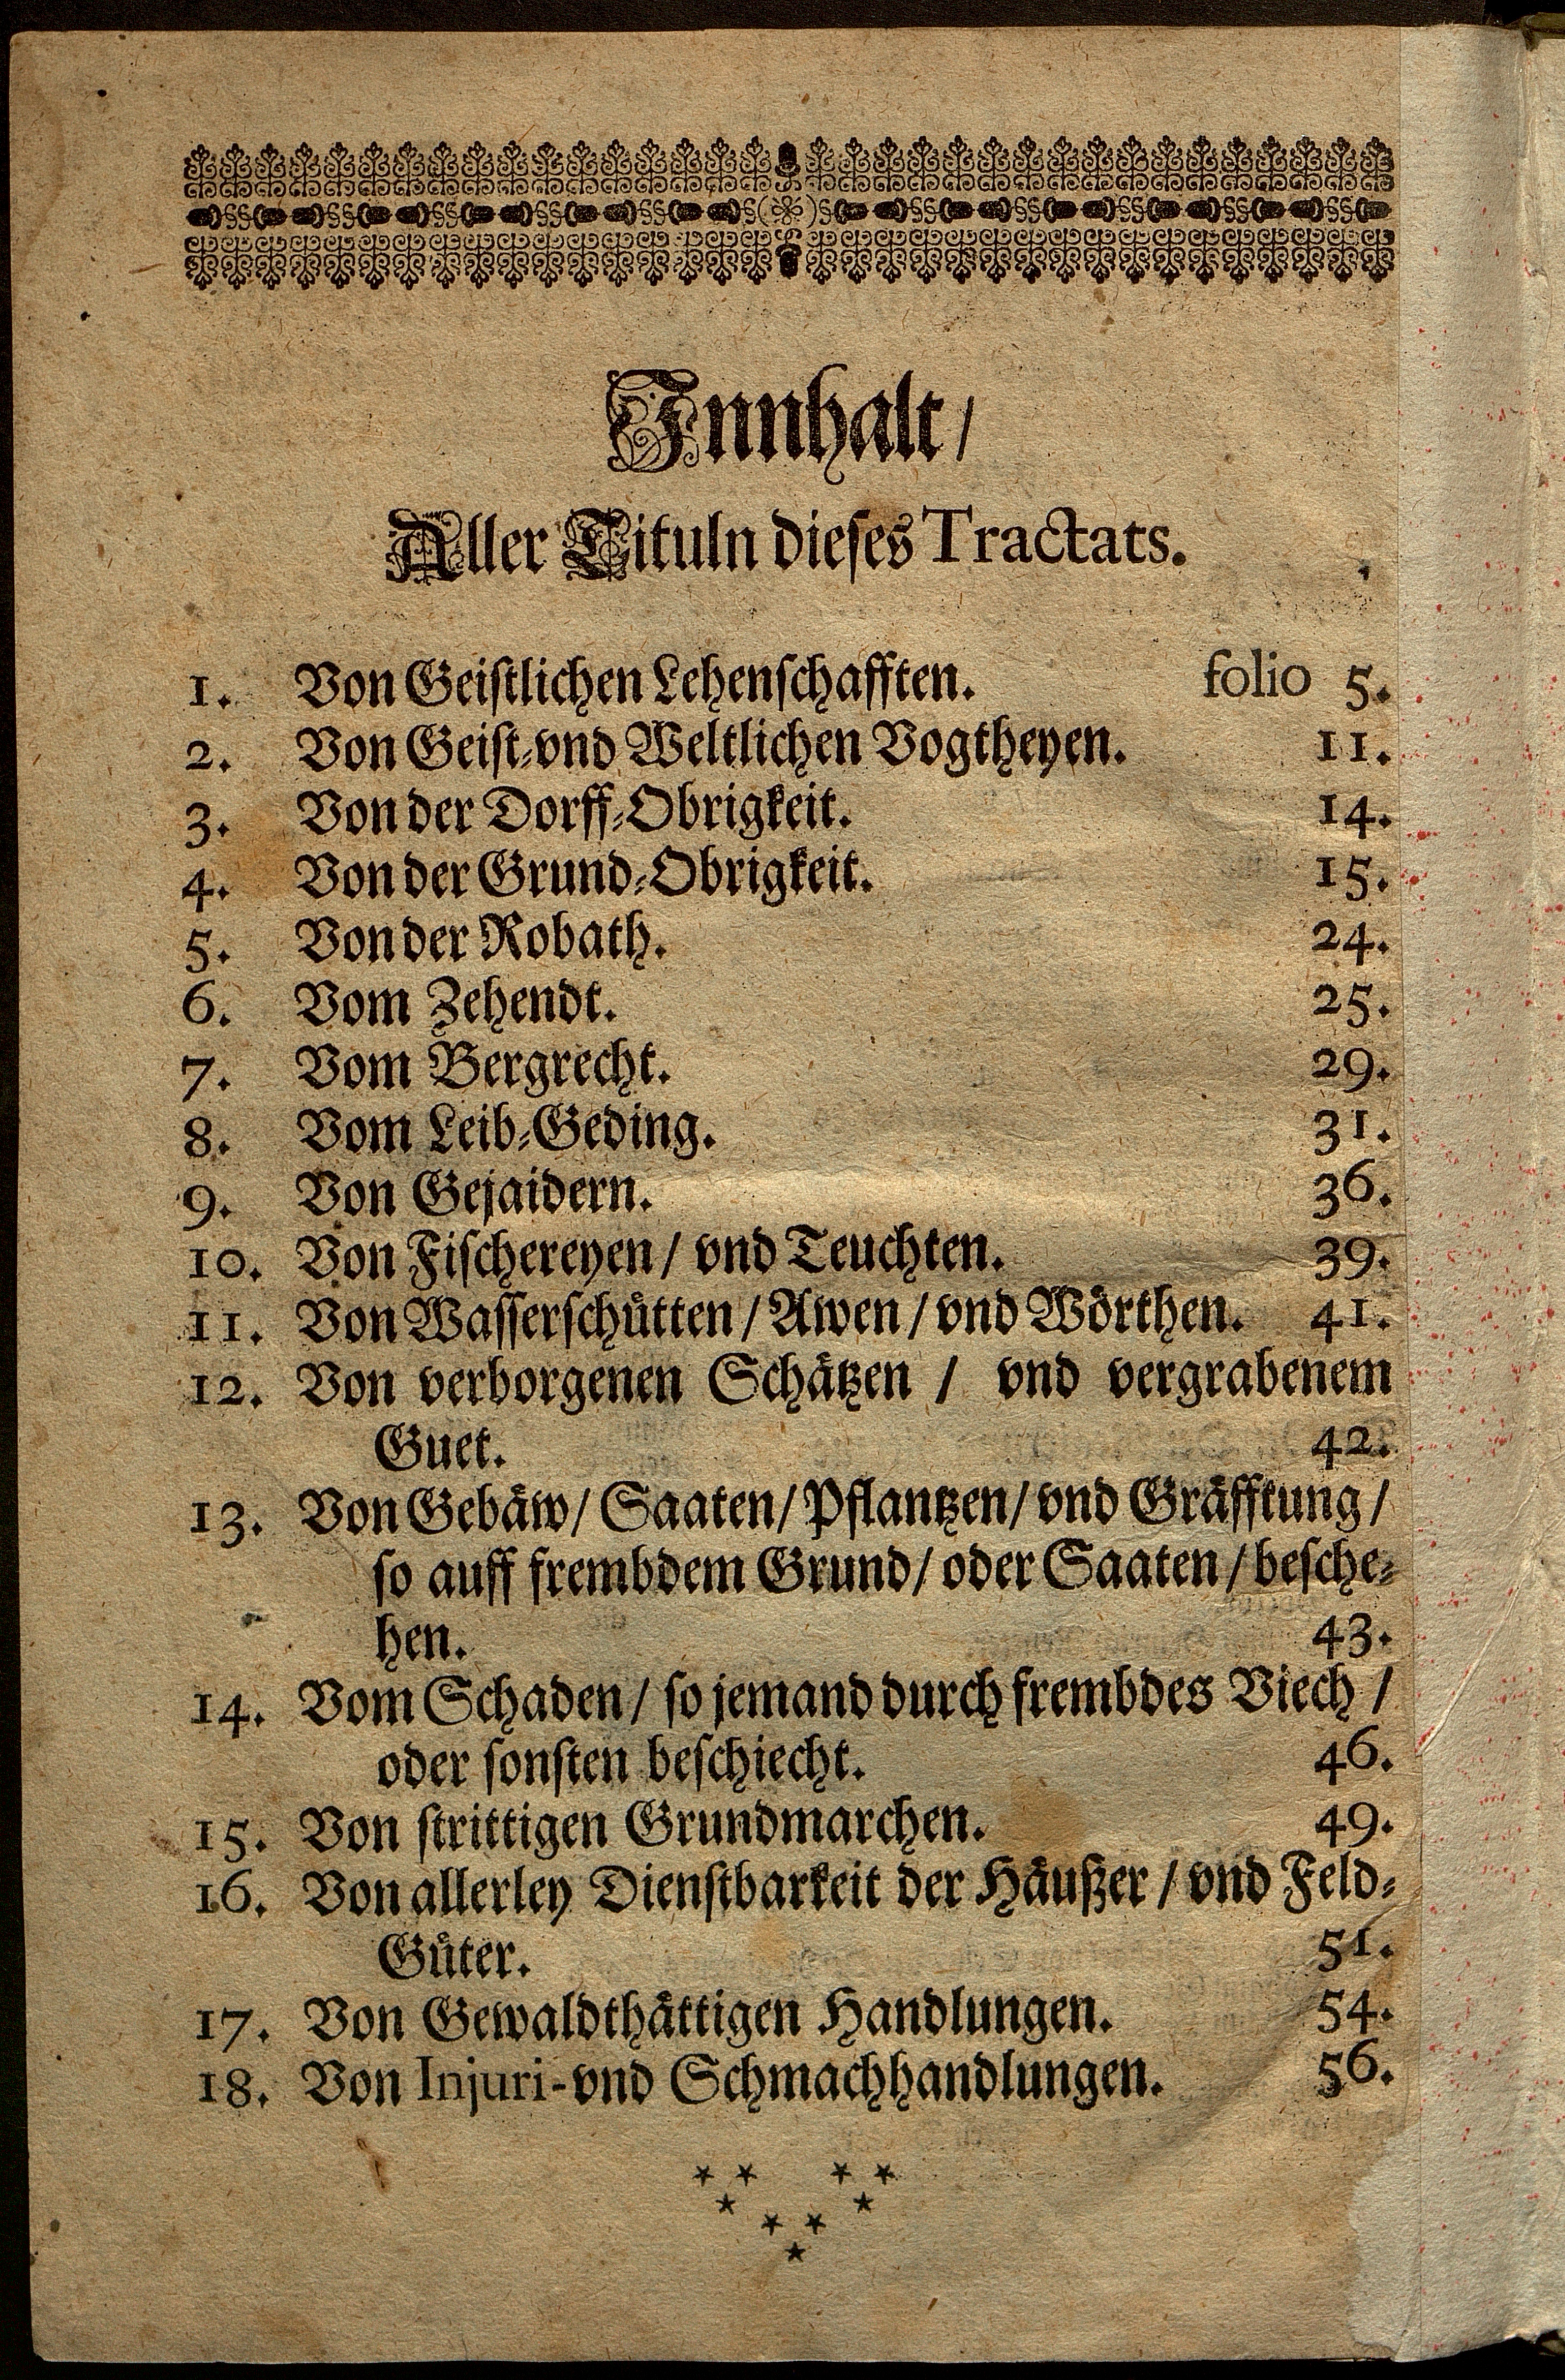 Innhalt/
Aller Tituln dieses Tractats.
1. Von Geistlichen Lehenschafften. folio 5.
2. Von Geist-vnd Weltlichen Vogtheyen. 11.
3. Von der Dorff-Obrigkeit. 14.
4. Von der Grund-Obrigkeit. 15.
5. Von der Robath. 24.
6. Vom Zehendt. 25.
7. Vom Bergrecht. 29.
8. Vom Leib-Geding. 31.
9. Von Gejaidern. 36.
10. Von Fischereyen/ vnd Teuchten. 39.
11. Von Wasserschütten/ Awen/ vnd Wörthen. 41.
12. Von verborgenen Schätzen / vnd vergrabenem
Guet. 42.
13. Von Gebäw/ Saaten/ Pflantzen/ vnd Gräfftung/
so auff frembdem Grund/ oder Saaten/ besche-
hen. 43.
14. Vom Schaden/ so jemand durch frembdes Viech /
oder sonsten beschiecht. 46.
15. Von strittigen Grundmarchen. 49.
16. Von allerley Dienstbarkeit der Häußer / vnd Feld-
Güter. 51.
17. Von Gewaldthättigen Handlungen. 54.
18. Von Injuri-vnd Schmachhandlungen. 56.